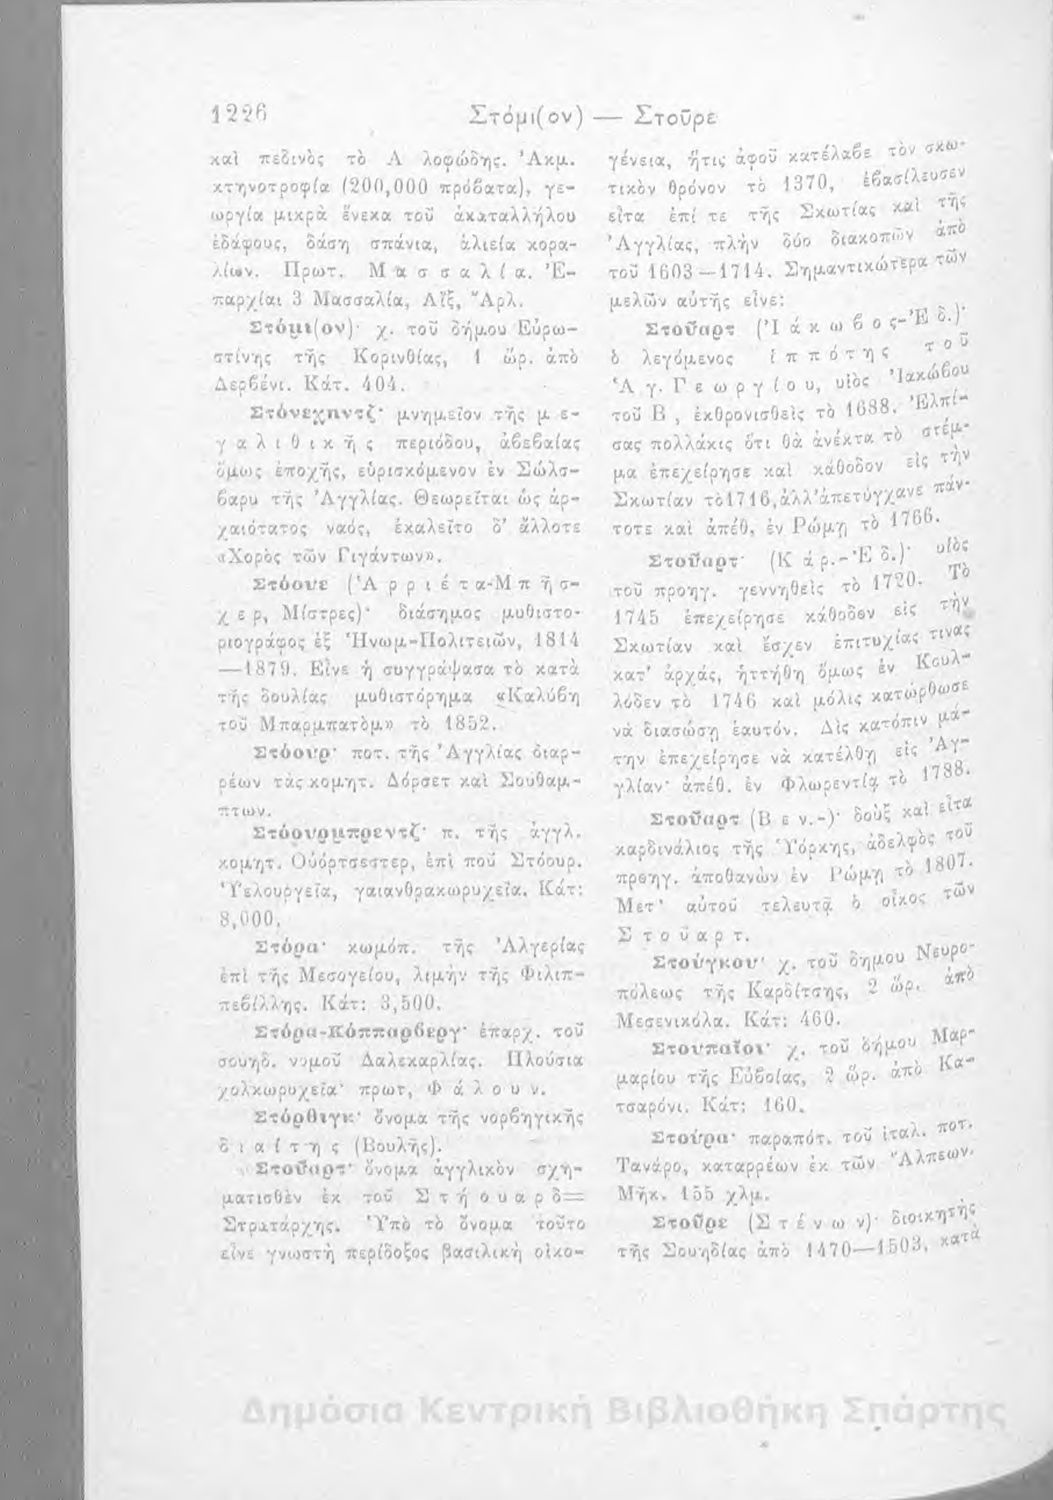 1226
Στόμι(ον) — Στοῦρε
καὶ πεδινὸς τὸ Α λοφώδης. Ἀκμ.
κτηνοτροφία (200,000 πρόβατα), γε-
ωργία μικρὰ ἕνεκα τοῦ ἀκαταλλήλου
ἐδάφους, δάση σπάνια, ἁλιεία κορα-
λίων. Πρωτ. Μασσαλία. Ἐ-
παρχίαι 3 Μασσαλία, Αἲξ, Ἄρλ.
Στόμι(ον)· χ. τοῦ δήμου Εὐρω-
στίνης τῆς Κορινθίας, 1 ὥρ. ἀπὸ
Δερβένι. Κάτ. 404.
Στόνεχηντζ· μνημεῖον τῆς με-
γαλιθικῆς περιόδου, ἀβεβαίας
ὅμως ἐποχῆς, εὑρισκόμενον ἐν Σώλσ-
βαρυ τῆς Ἀγγλίας. Θεωρεῖται ὡς ἀρ-
χαιότατος ναός, ἐκαλεῖτο δ' ἄλλοτε
«Χορὸς τῶν Γιγάντων».
Στόουε (Ἁρριέτα-Μπῆσ-
χερ, Μίστρες)· διάσημος μυθιστο-
ριογράφος ἐξ Ἡνωμ-Πολιτειῶν, 1814
—1879. Εἶνε ἡ συγγράψασα τὸ κατὰ
τῆς δουλίας μυθιστόρημα «Καλύβη
τοῦ Μπαρμπατὸμ» τὸ 1852.
Στόουρ· ποτ. τῆς Ἀγγλίας διαρ-
ρέων τὰς κομητ. Δόρσετ καὶ Σούθαμ-
πτων.
Στόουρμπρεντζ· π. τῆς ἀγγλ.
κομητ. Οὐόρτσεστερ, ἐπὶ ποῦ Στόουρ.
Ὑελουργεῖα, γαιανθρακωρυχεῖα. Κάτ:
8,000.
Στόρα· κωμόπ. τῆς Ἀλγερίας
ἐπὶ τῆς Μεσογείου, λιμὴν τῆς Φιλιπ-
πεβίλλης. Κάτ: 3,500.
Στόρα-Κόππαρβεργ· ἐπαρχ. τοῦ
σουηδ. νομοῦ Δαλεκαρλίας. Πλούσια
χαλκωρυχεῖα· πρωτ, Φάλουν.
Στόρθιγκ· ὄνομα τῆς νορβηγικῆς
διαίτης (Βουλῆς).
Στοῦαρτ· ὄνομα ἀγγλικὸν σχη-
ματισθὲν ἐκ τοῦ Στήουαρδ=
Στρατάρχης. Ὑπὸ τὸ ὄνομα τοῦτο
εἶνε γνωστὴ περίδοξος βασιλικὴ οἰκο-
γένεια, ἥτις ἀφοῦ κατέλαβε τὸν σκω-
τικὸν θρόνον τὸ 1370, ἐβασίλευσεν
εἶτα ἐπί τε τῆς Σκωτίας καὶ τῆς
Ἀγγλίας, πλὴν δύο διακοπῶν ἀπὸ
τοῦ 1603—1714. Σημαντικώτερα τῶν
μελῶν αὐτῆς εἶνε:
Στοῦαρτ (Ἰάκωβος-Ἐδ.)·
ὁ λεγόμενος ἱππότης τοῦ
Ἁγ. Γεωργίου, υἱὸς Ἰακώβου
τοῦ Β, ἐκθρονισθεὶς τὸ 1688. Ἐλπί-
σας πολλάκις ὅτι θὰ ἀνέκτα τὸ στέμ-
μα ἐπεχείρησε καὶ κάθοδον εἰς τὴν
Σκωτίαν τὸ 1716, ἀλλ' ἀπετύγχανε πάν-
τοτε καὶ ἀπέθ. ἐν Ρώμῃ τὸ 1766.
Στοῦαρτ· (Κάρ.-Ἐδ.)· υἱὸς
τοῦ προηγ. γεννηθεὶς τὸ 1720. Τὸ
1745 ἐπεχείρησε κάθοδον εἰς τὴν
Σκωτίαν καὶ ἔσχεν ἐπιτυχίας τινὰς
κατ' ἀρχάς, ἡττήθη ὅμως ἐν Κουλ-
λόδεν τὸ 1746 καὶ μόλις κατώρθωσε
νὰ διασώσῃ ἑαυτόν. Δὶς κατόπιν μά-
την ἐπεχείρησε νὰ κατέλθῃ εἰς Ἀγ-
γλίαν· ἀπέθ. ἐν Φλωρεντίᾳ τὸ 1788.
Στοῦαρτ (Βεν.-)· δοὺξ καὶ εἶτα
καρδινάλιος τῆς Ὑόρκης, ἀδελφὸς τοῦ
προηγ. ἀποθανὼν ἐν Ρώμῃ τὸ 1807.
Μετ' αὐτοῦ τελευτᾷ ὁ οἶκος τῶν
Στουαρτ.
Στούγκου· χ. τοῦ δήμου Νευρο-
πόλεως τῆς Καρδίτσης, 2 ὥρ. ἀπὸ
Μεσενικόλα. Κάτ: 460.
Στουπαῖοι· χ. τοῦ δήμου Μαρ-
μαρίου τῆς Εὐβοίας, 2 ὥρ. ἀπὸ Κα-
τσαρόνι. Κάτ: 160.
Στούρα· παραπότ. τοῦ ἰταλ. ποτ.
Τανάρο, καταρρέων ἐκ τῶν Ἄλπεων.
Μῆκ. 155 χλμ.
Στοῦρε (Στένων)· διοικητὴς
τῆς Σουηδίας ἀπὸ 1470—1503, κατὰ
Δημόσια Κεντρική Βιβλιοθήκη Σπάρτης